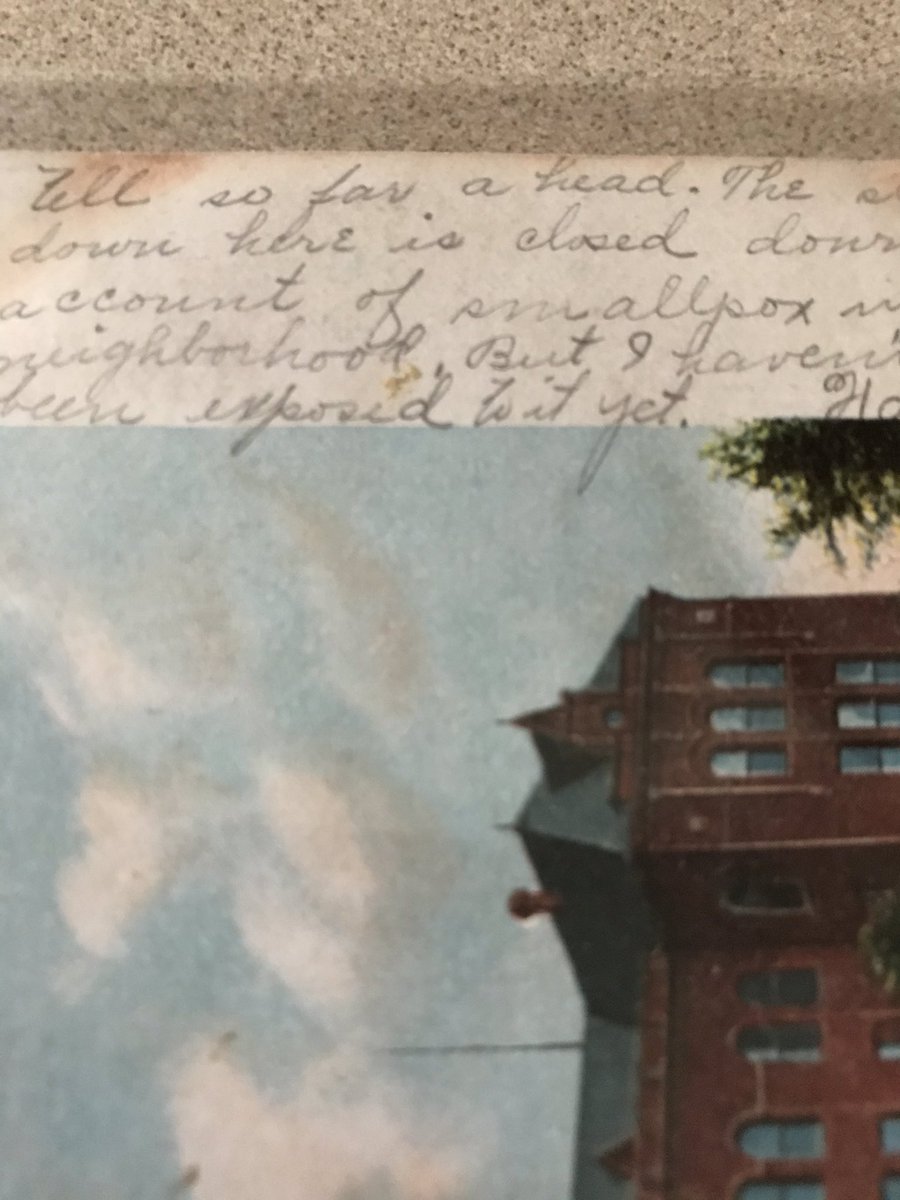 Tell so far a head. The
down here is closed down
account of smallpox in
neighborhood. But I haven't
been exposed to it yet.